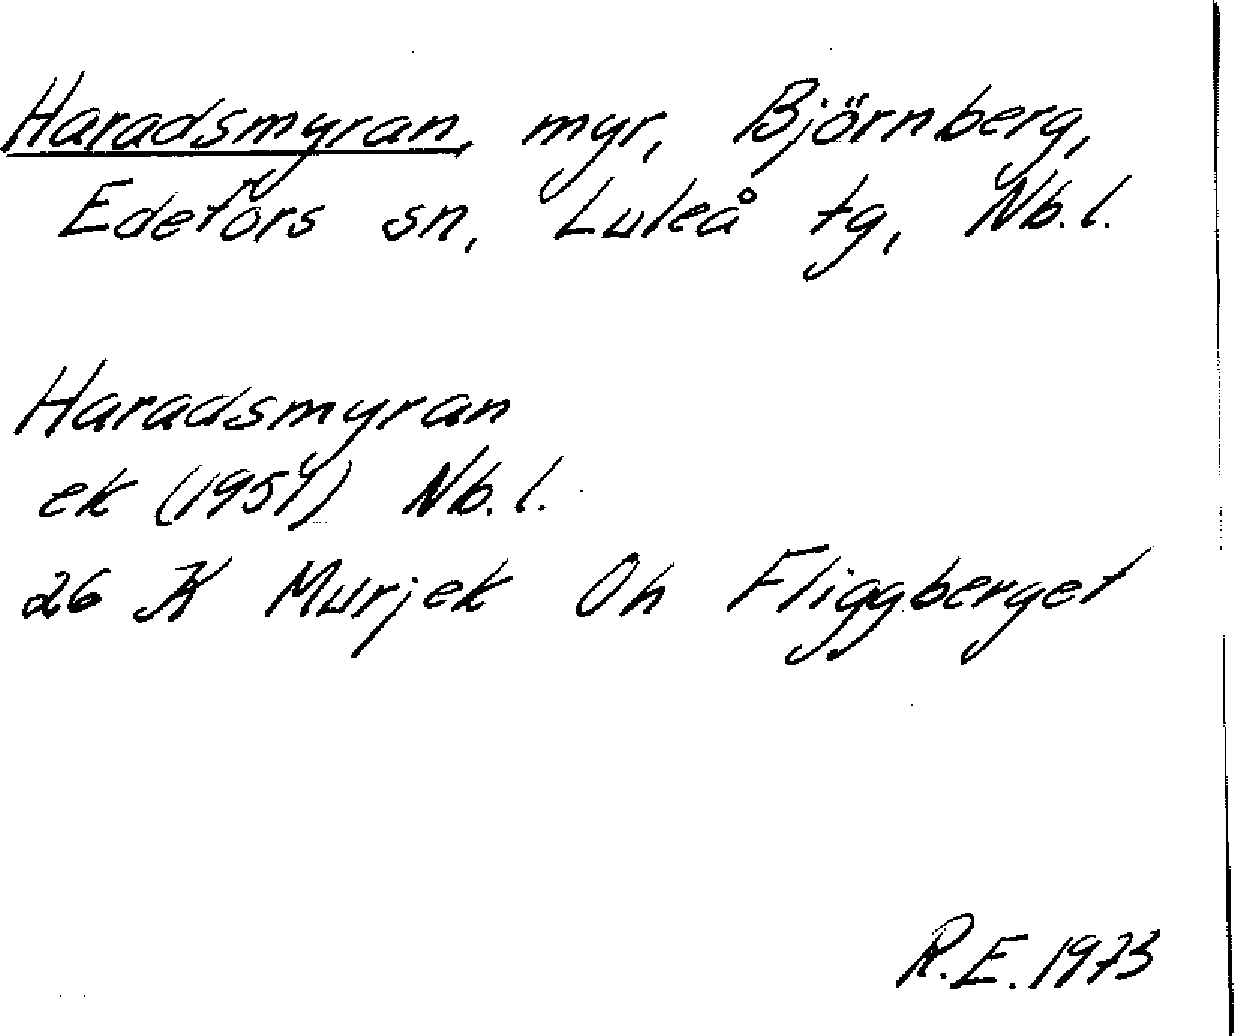 Haradsmyran, myr, Björnberg,
Edefors sn, Luleå tg, Nb.l.
Haradsmyran
ek (1951) Nb.l.
26 K Murjek 0h Fliggberget
R.E. 1973